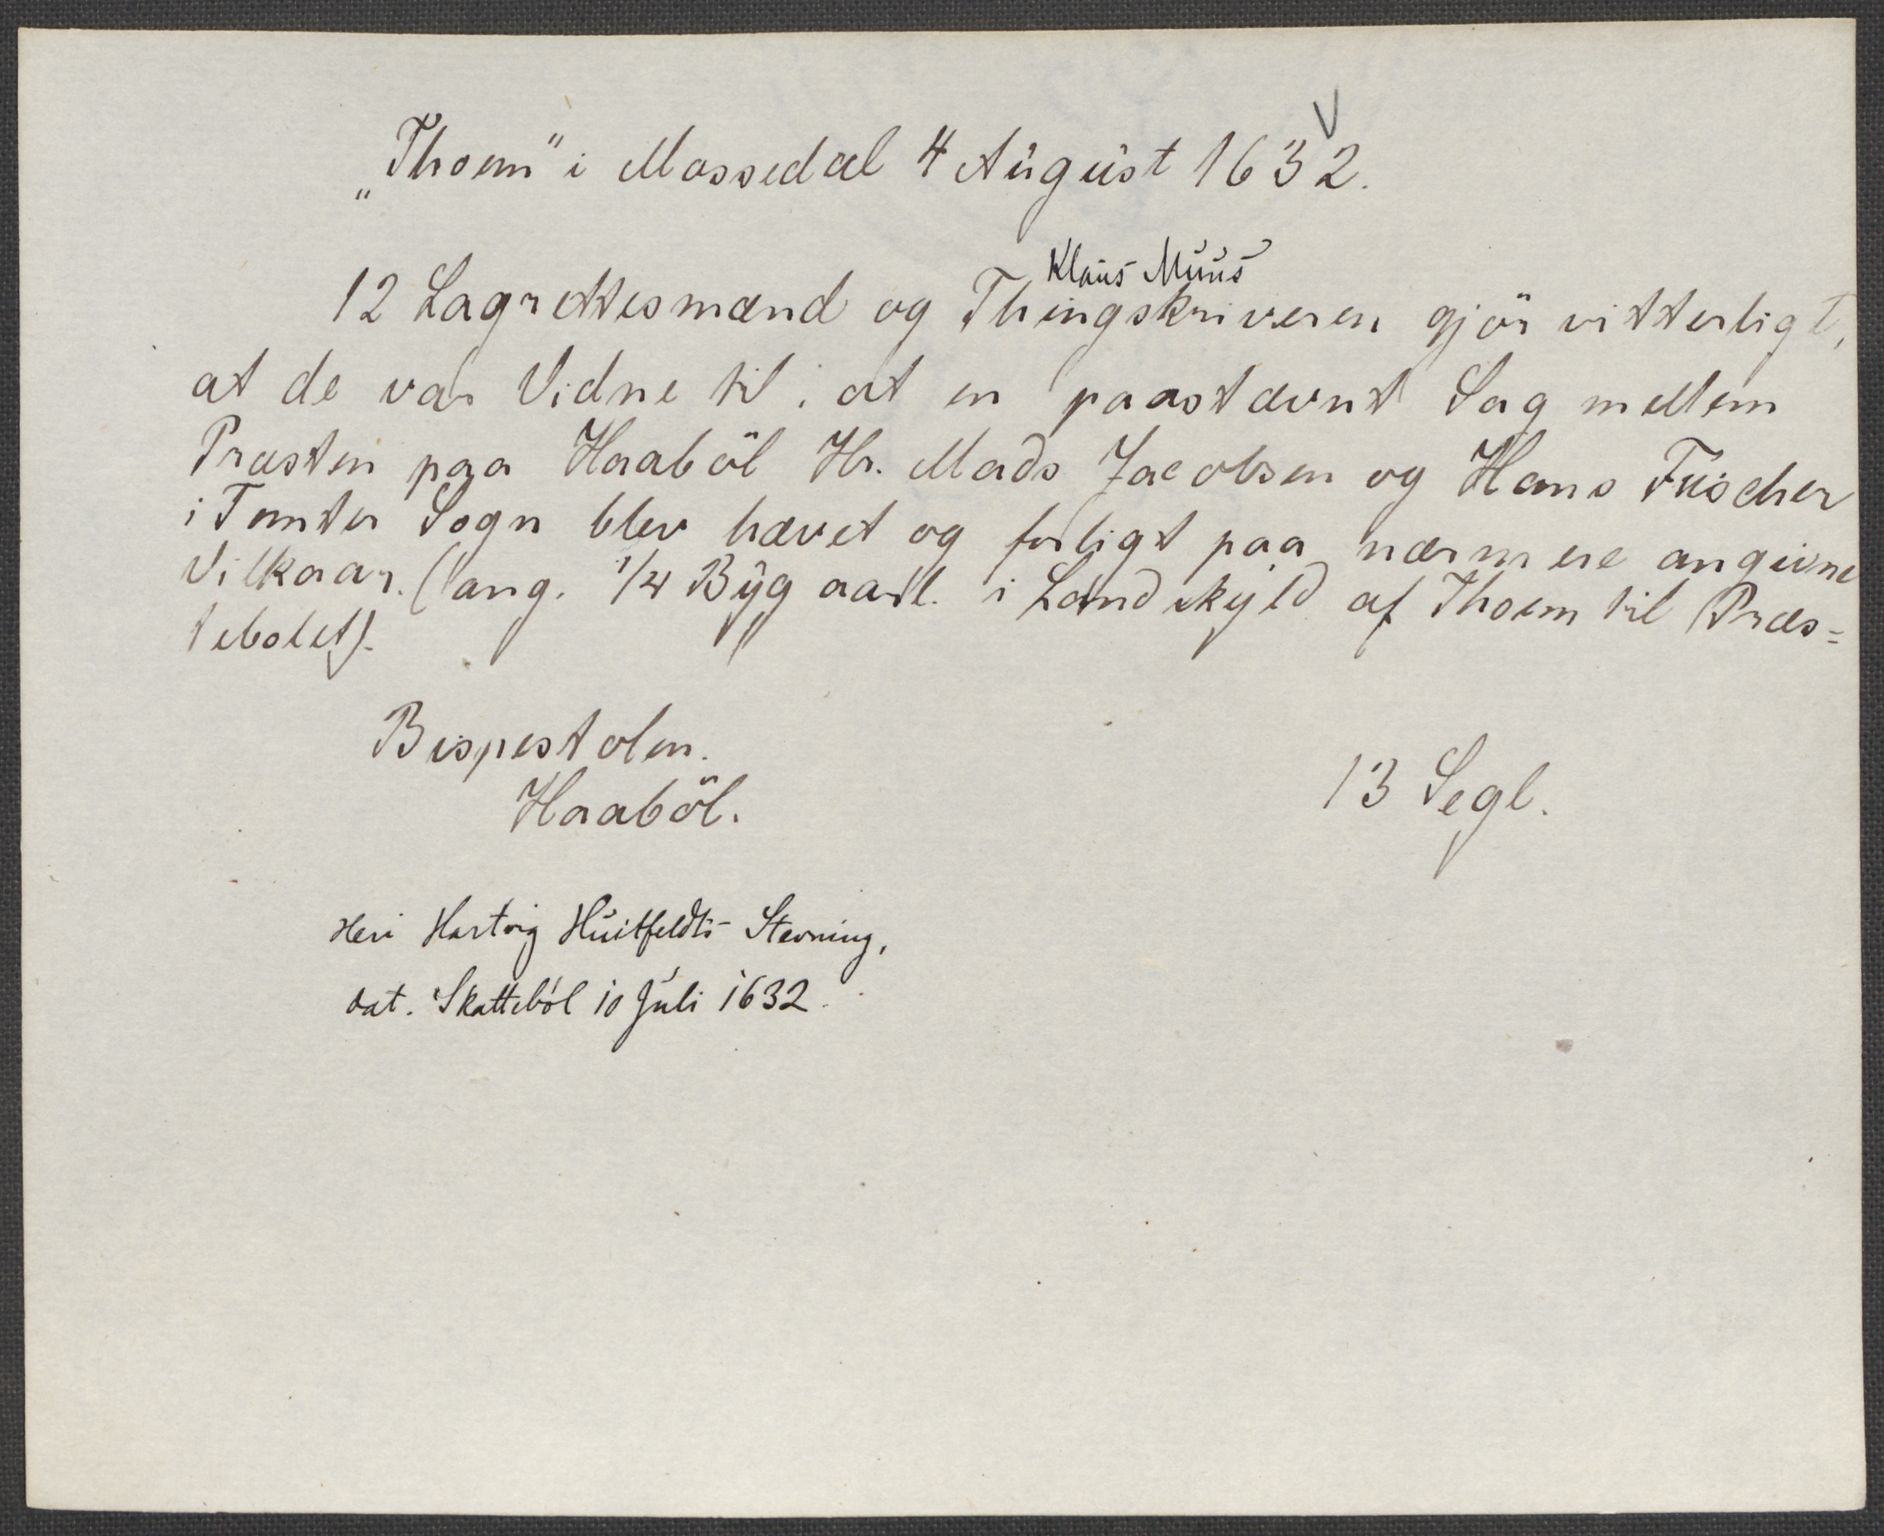 „Thoem“ i Mossedal 4 August 1632.
Klaus Muus
12 Lagrettesmænd og Thingskriveren gjör vitterligt,
at de var Vidne til, at en paastævnt Sag mellem
Præsten paa Haaböl Hr. Mads Jacobsen og Hans Fuscher
i Tomter Sogn blev hævet og forligt paa nærmere angivne
Vilkaar. (ang. 1/4 Byg aarl. i Landskyld af Thoem til Præs=
tebolet).
Bispestolen.
Haaböl.
13 Segl.
Heri Hartvig Huitfeldts Stevning,
dat. Skatteból 10 Juli 1632.